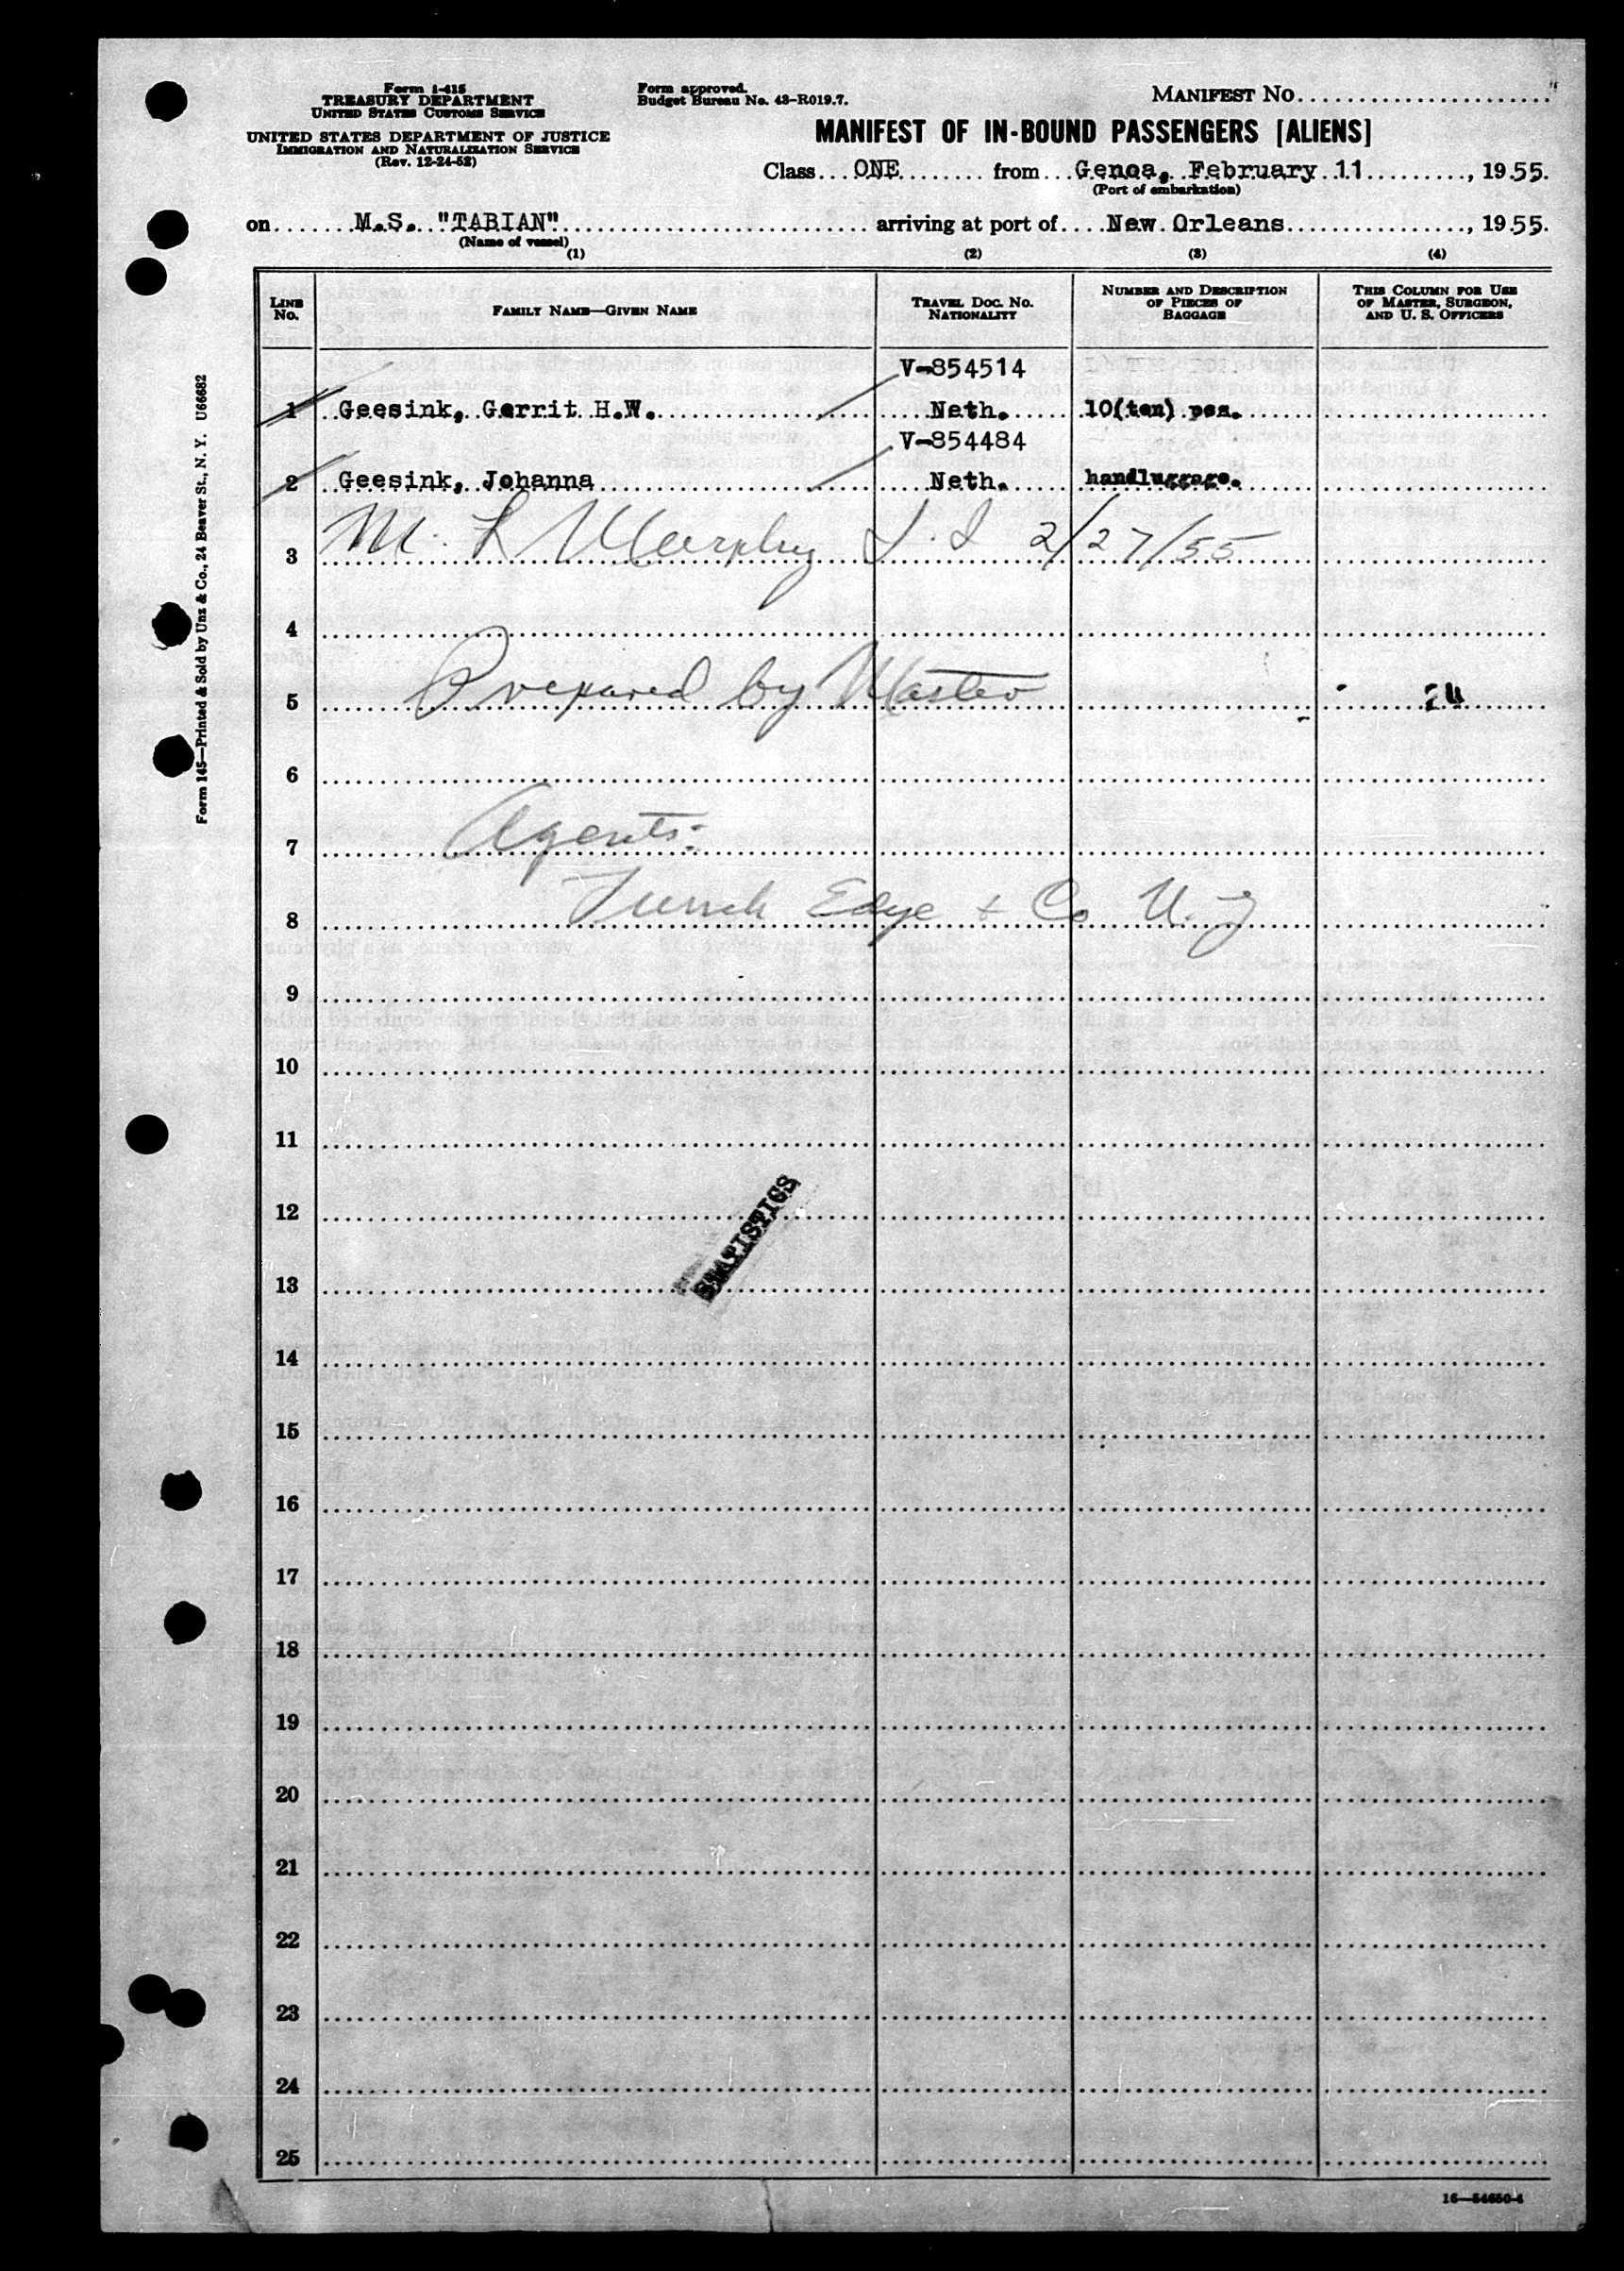 Form I-415
TREASURY DEPARTMENT
UNITED STATES CUSTOMS SERVICE
UNITED STATES DEPARTMENT OF JUSTICE
IMMIGRATION AND NATURALIZATION SERVICE
(Rev. 12-24-52)
Form approved.
Budget Bureau No. 43-R019.7.
MANIFEST NO.
MANIFEST OF IN-BOUND PASSENGERS [ALIENS]
Class ONE from Genoa, February 11, 1955.
(Port of embarkation)
on M.S. "TABIAN" arriving at port of New Orleans, 1955.
(Name of vessel)
(1) (2) (3) (4)
LINE NO. FAMILY NAME—GIVEN NAME TRAVEL DOC. NO. NATIONALITY NUMBER AND DESCRIPTION OF PIECES OF BAGGAGE THIS COLUMN FOR USE OF MASTER, SURGEON, AND U. S. OFFICERS
V-854514
1 Geesink, Gerrit H.W. Neth. 10(ten) pcs.
V-854484
2 Geesink, Johanna Neth. handluggage.
3 M. L Murphy 2/27/55
4
5 Prepared by Master
6
7 Agents:
8 Edye & Co
9
10
11
12
STATISTICS
13
14
15
16
17
18
19
20
21
22
23
24
25
16—54650-1
Form 145—Printed & Sold by Unz & Co., 24 Beaver St., N. Y. U66682